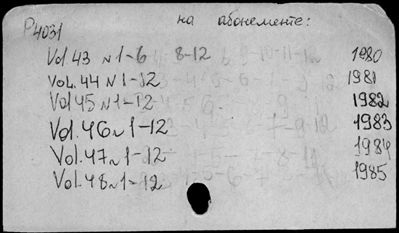 на абонементе:
P4031
Vol.43 N1-6 8-12 1980
Vol.44 N1-12 1981
Vol 45 N1-12 1982
Vol.46 N1-12 1983
Vol.47 N1-12 1984
Vol.48 N1-12 1985